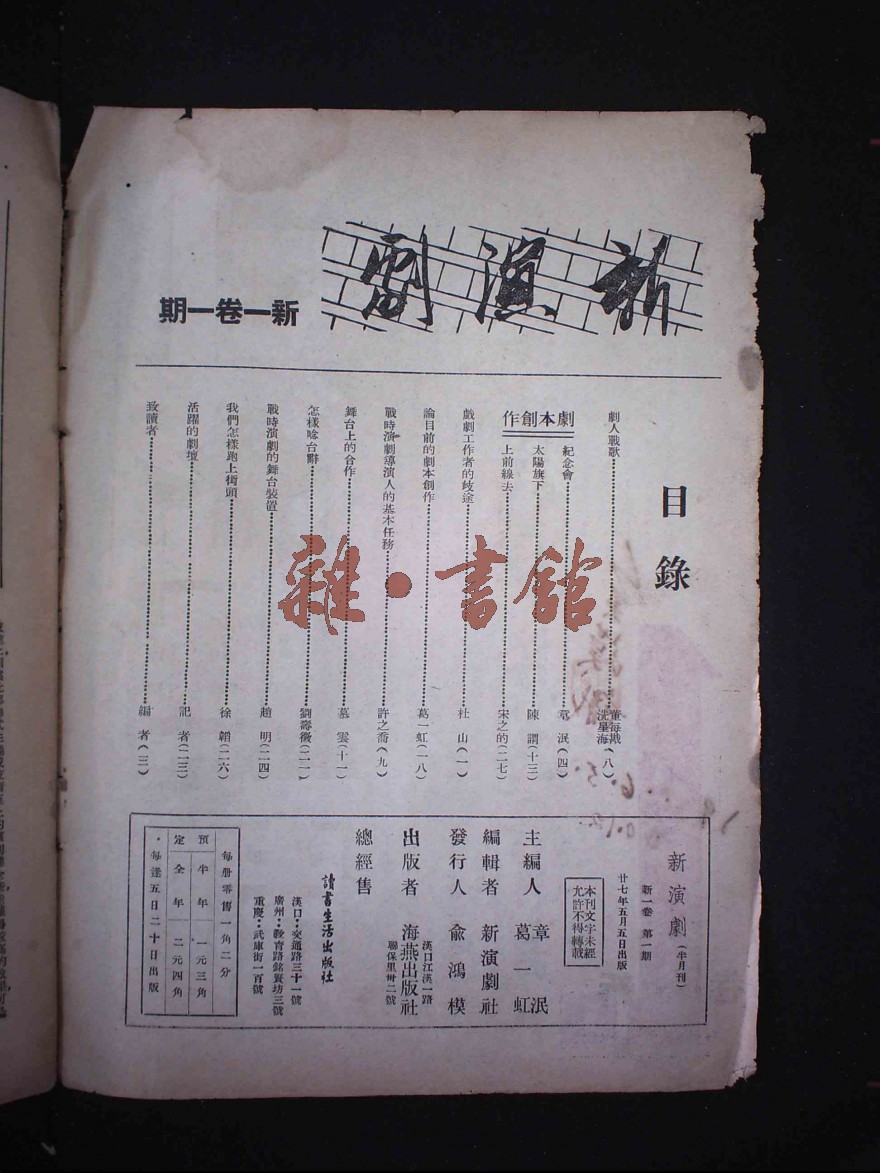 新演劇
新一卷一期
目錄
劇人戰歌……董每戡 冼星海（八）
劇本創作
紀念會……章 泯（四）
太陽旗下……陳 謂（十三）
上前線去……宋之的（二七）
戲劇工作者的歧途……杜 山（一）
論目前的劇本創作……葛一虹（一八）
戰時演劇導演人的基本任務……許之喬（九）
舞台上的合作……墓 雲（十一）
怎樣唸台辭……劉壽徵（二一）
戰時演劇的舞台裝置……趙 明（二四）
我們怎樣跑上街頭……徐 韜（二六）
活躍的劇壇……記 者（二三）
致讀者……編 者（三一）
新演劇（半月刊）
新一卷 第一期
廿七年五月五日出版
本刊文字未經
允許不得轉載
主編人 章 泯
葛一虹
編輯者 新演劇社
發行人 俞鴻模
出版者 海燕出版社
漢口江漢一路
聯保里卅二號
總經售
讀書生活出版社
漢口：交通路三十一號
廣州：教育路銘賢坊三號
重慶：武庫街一百號
每册零售一角二分
預 半年 一元三角
定 全年 二元四角
・每逢五日二十日出版
雜・書館